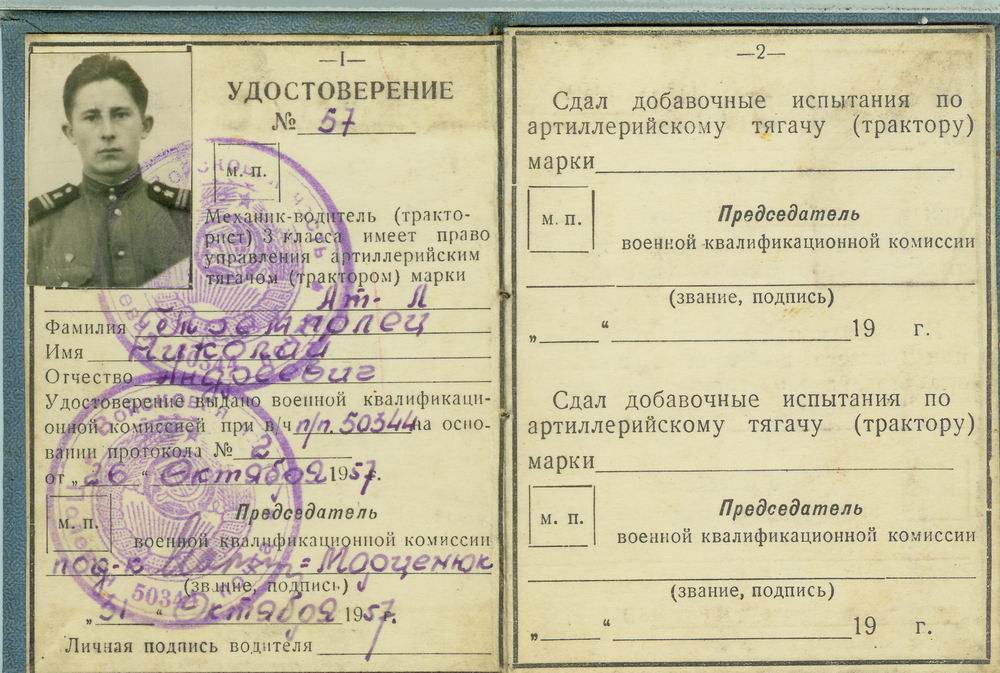 —1—
УДОСТОВЕРЕНИЕ
№ 57
м. п.
Механик-водитель (тракто-
рист) 3 класса имеет право
управления артиллерийским
тягачом (трактором) марки
Ат-Л
Фамилия
Имя Николай
Отчество Андреевич
Удостоверение выдано военной квалификаци-
онной комиссией при в/ч п/п. 50344 на осно-
вании протокола № 2
от „26“ Октября 1957г.
м. п.
Председатель
военной квалификационной комиссии
под-к Марценюк
(звание, подпись)
„31“ Октября 1957г.
Личная подпись водителя
50344
—2—
Сдал добавочные испытания по
артиллерийскому тягачу (трактору)
марки
м. п.
Председатель
военной квалификационной комиссии
(звание, подпись)
„ “ 19 г.
Сдал добавочные испытания по
артиллерийскому тягачу (трактору)
марки
м. п.
Председатель
военной квалификационной комиссии
(звание, подпись)
„ “ 19 г.